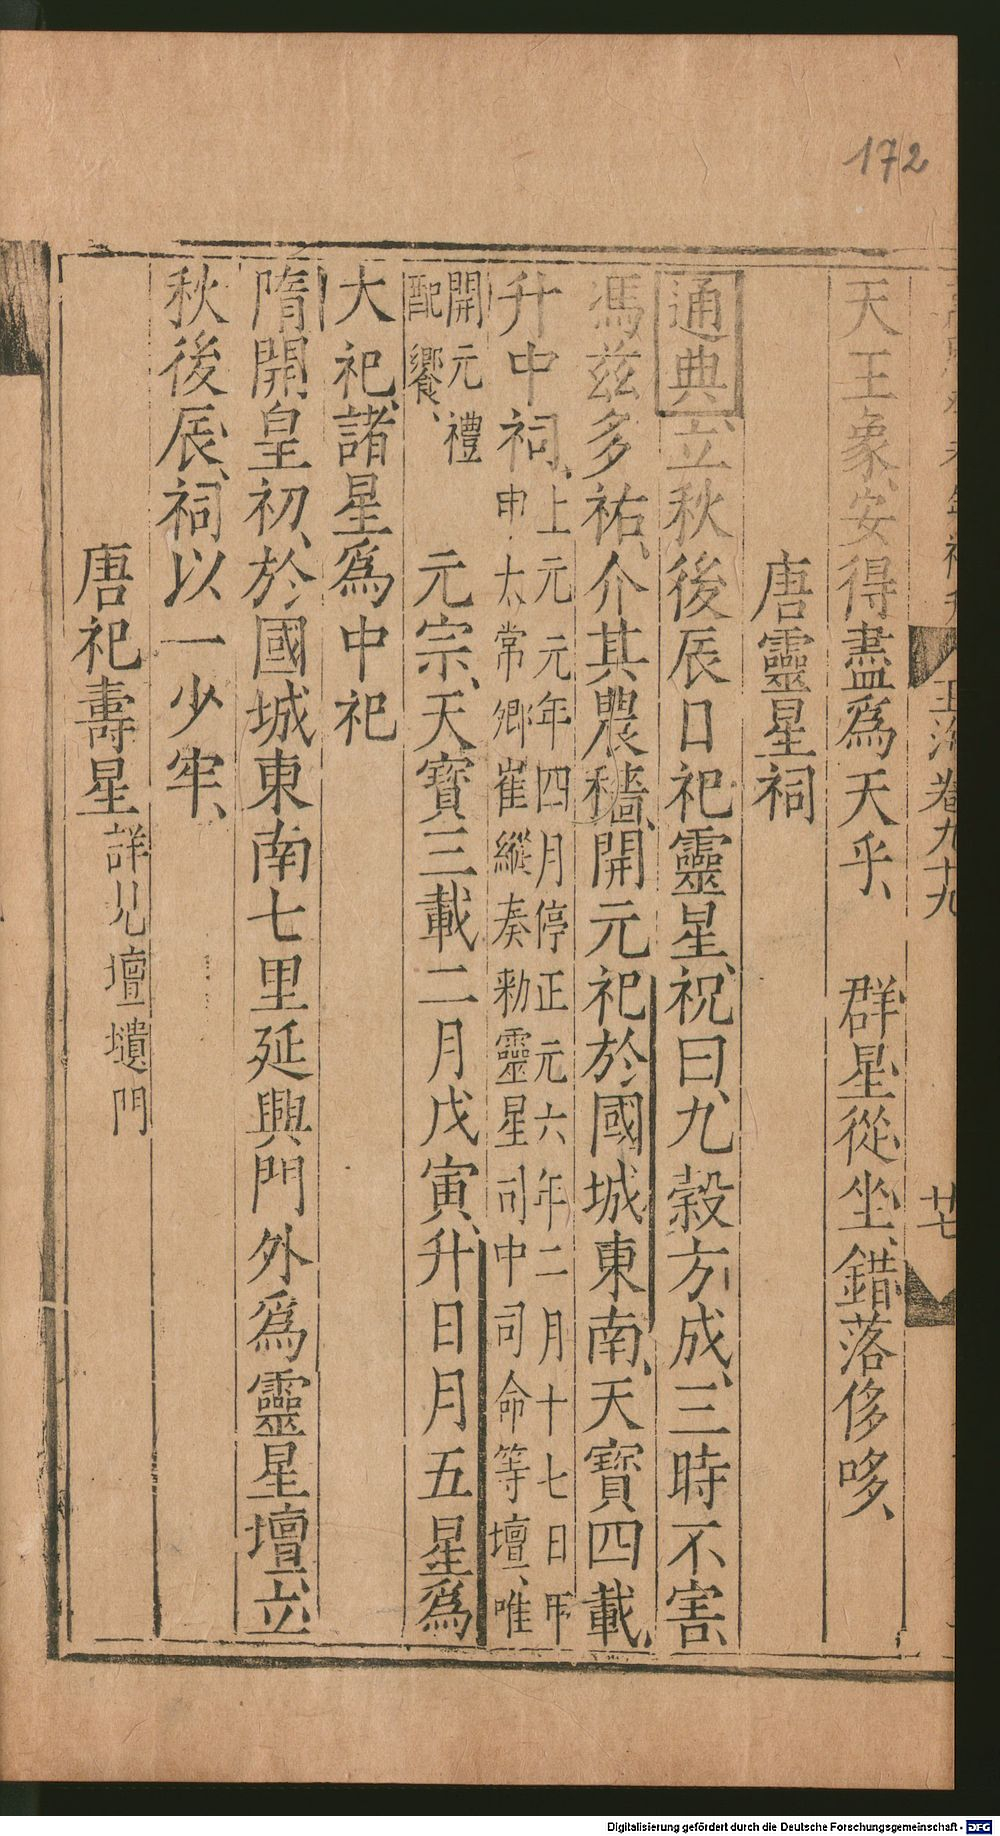 172
玉海卷九十九
廿七
天王象、安得盡爲天乎、 群星從坐、錯落侈哆、
唐靈星祠
通典、立秋後辰日祀靈星、祝曰、九穀方成、三時不害、
馮茲多祐、介其農穡、開元祀於國城東南、天寶四載、
升中祠、上元元年四月停正元六年二月十七日
申太常卿崔縱奏勑靈星司中司命等壇、唯
開元禮
配饗、
元宗、天寶三載二月戊寅、升日月五星爲
大祀、諸星爲中祀
隋開皇初、於國城東南七里延興門外爲靈星壇、立
秋後辰、祠以一少牢、
唐祀壽星詳見壇壝門
Digitalisierung gefördert durch die Deutsche Forschungsgemeinschaft - DFG